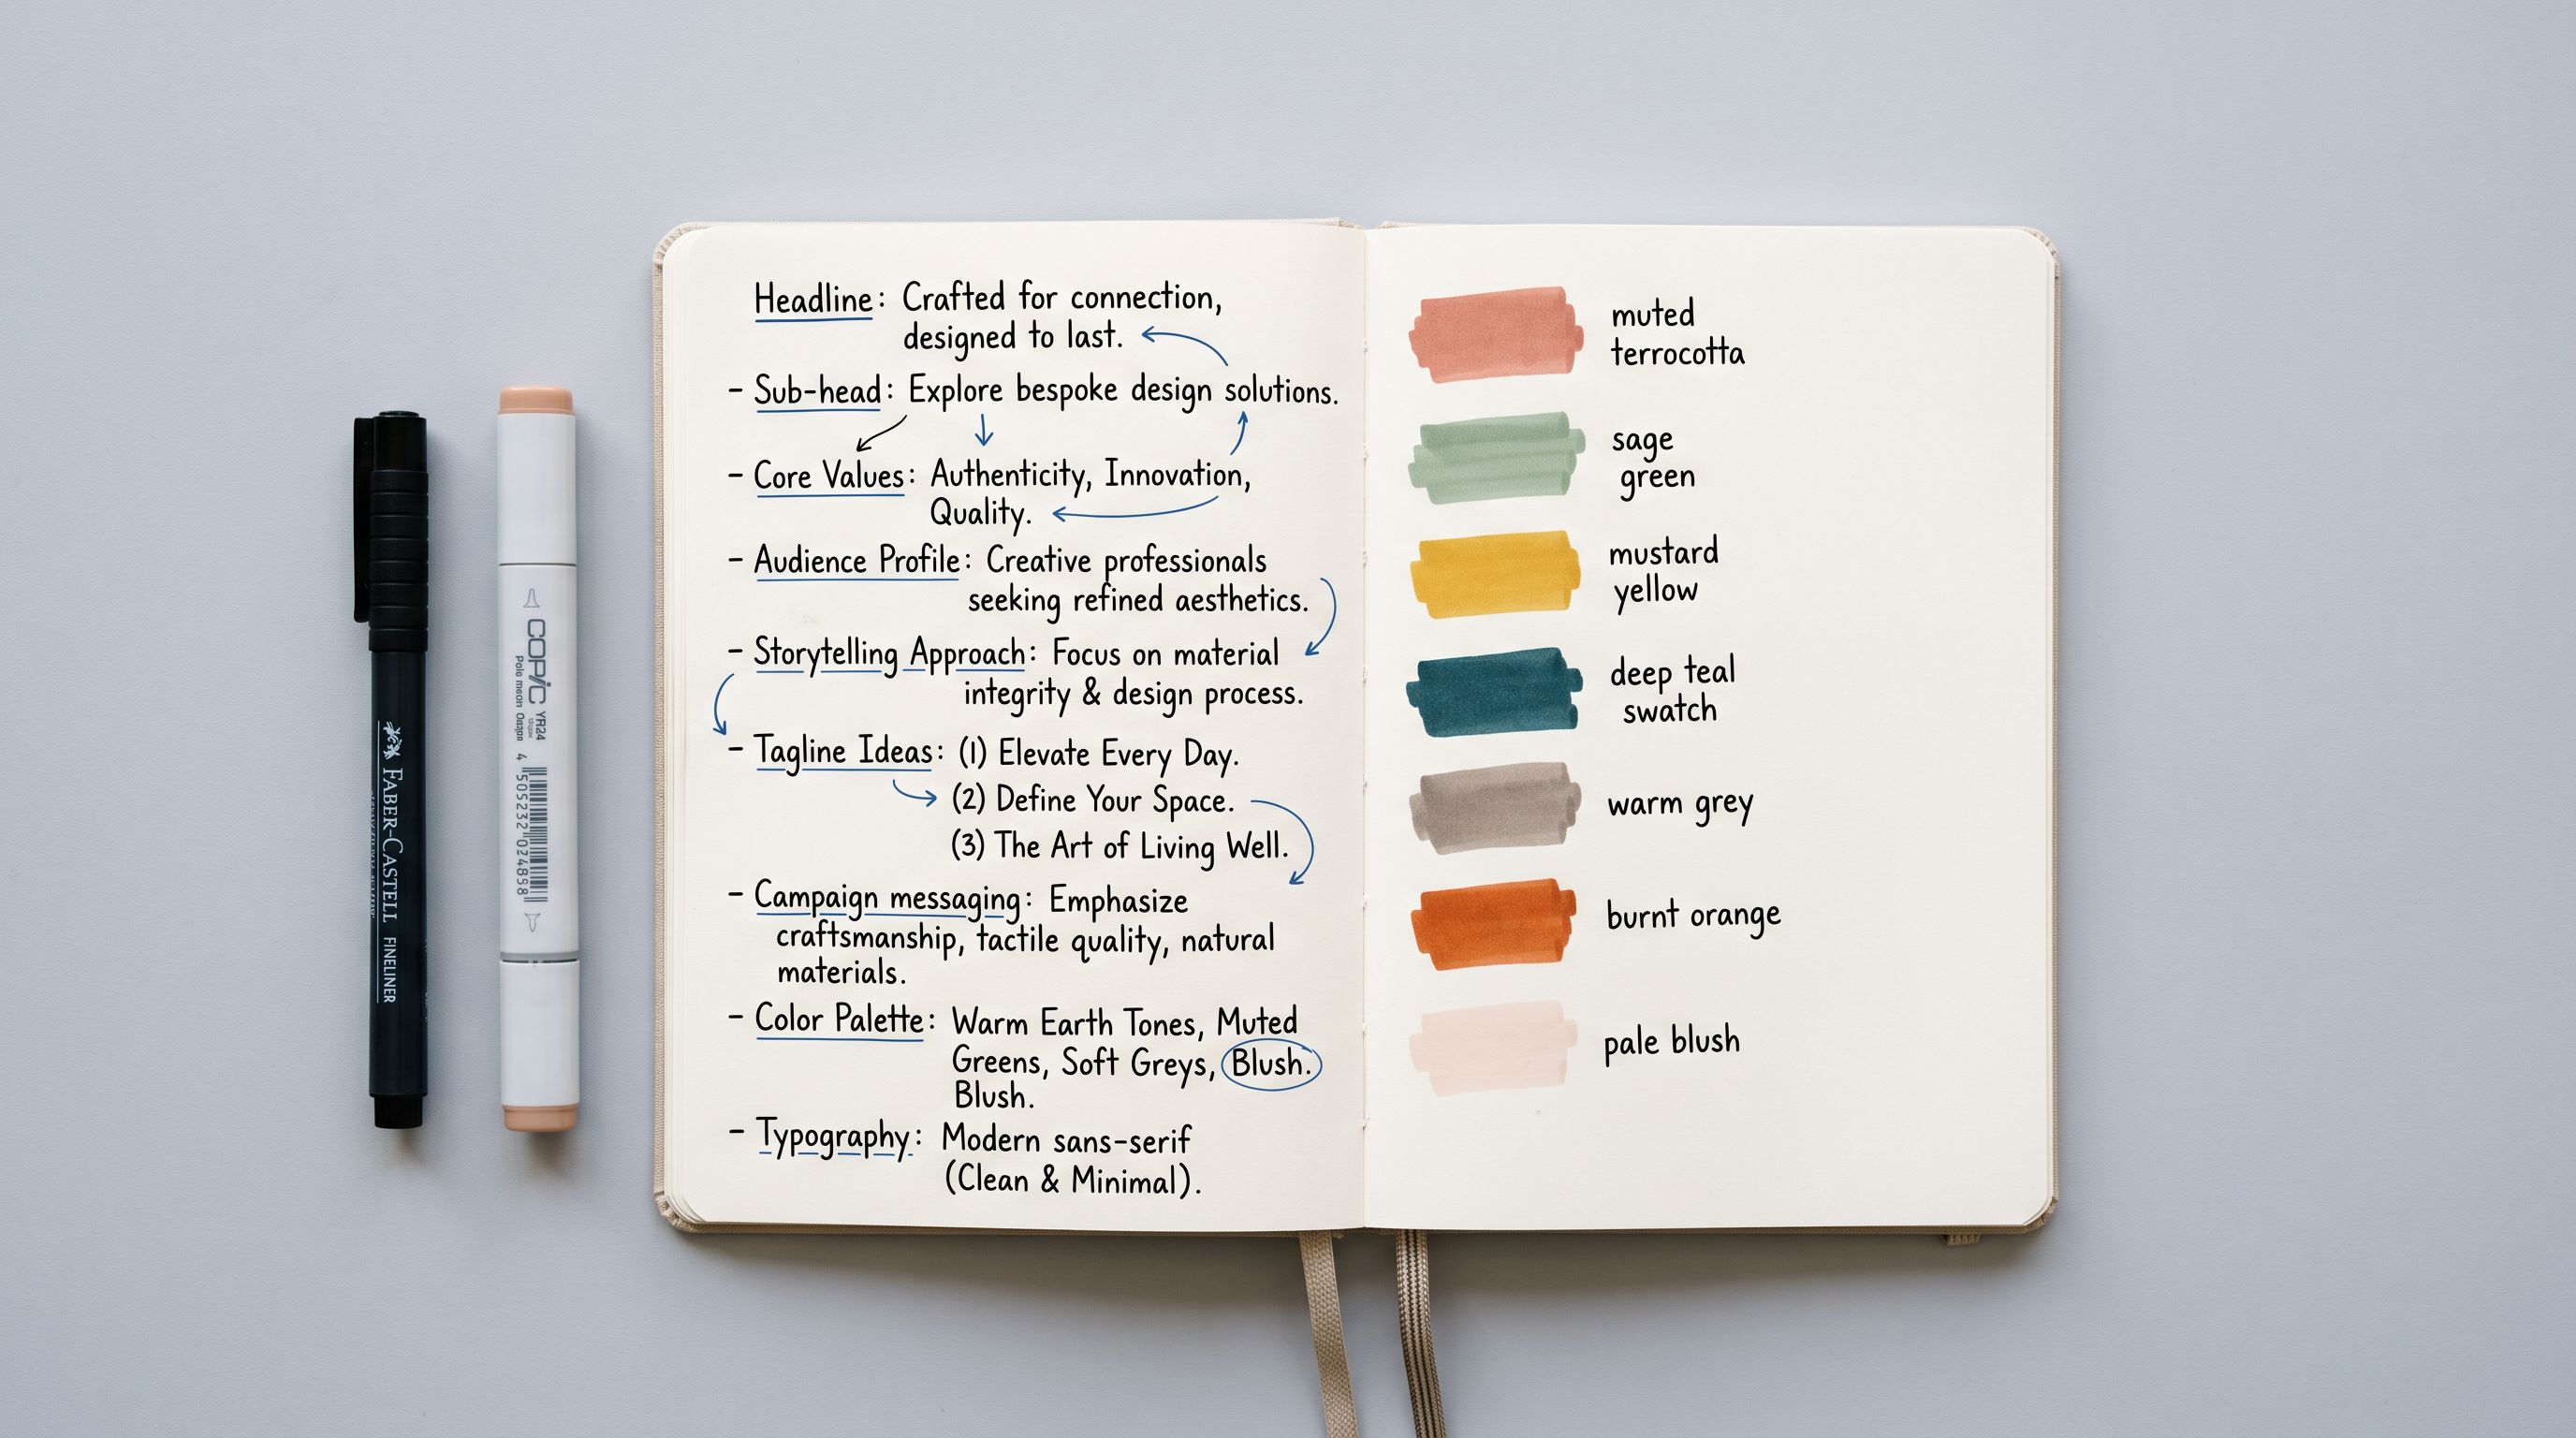 Headline: Crafted for connection,
designed to last.
- Sub-head: Explore bespoke design solutions.
- Core Values: Authenticity, Innovation,
Quality.
- Audience Profile: Creative professionals
seeking refined aesthetics.
- Storytelling Approach: Focus on material
integrity & design process.
- Tagline Ideas: (1) Elevate Every Day.
(2) Define Your Space.
(3) The Art of Living Well.
- Campaign messaging: Emphasize
craftsmanship, tactile quality, natural
materials.
- Color Palette: Warm Earth Tones, Muted
Greens, Soft Greys, Blush.
Blush.
- Typography: Modern sans-serif
(Clean & Minimal).
muted
terrocotta
sage
green
mustard
yellow
deep teal
swatch
warm grey
burnt orange
pale blush
FABER-CASTELL FINELINER
COPIC YR24